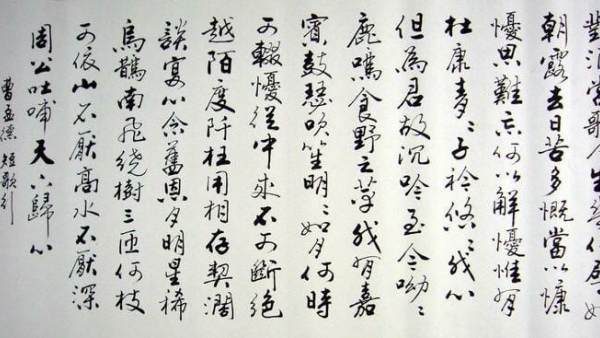 對酒當歌人生幾何譬如
朝露去日苦多慨當以慷
懮思難忘何以解懮惟有
杜康青〻子衿悠〻我心
但為君故沉吟至今呦〻
鹿鳴食野之苹我有嘉
賓鼓瑟吹笙明〻如月何時
可輟懮從中來不可斷絕
越陌度阡枉用相存契闊
談宴心念舊恩月明星稀
烏鵲南飛繞樹三匝何枝
可依山不厭高水不厭深
周公吐哺天下歸心
曹孟德短歌行